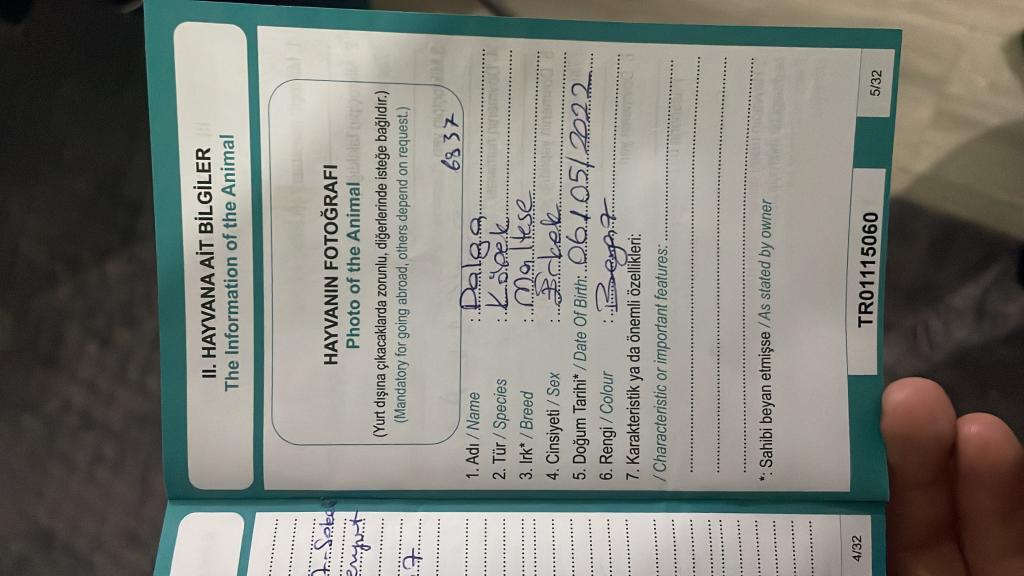 II. HAYVANA AİT BİLGİLER
The Information of the Animal
HAYVANIN FOTOĞRAFI
Photo of the Animal
(Yurt dışına çıkacaklarda zorunlu, diğerlerinde isteğe bağlıdır.)
(Mandatory for going abroad, others depend on request.)
6337
1. Adı / Name : Dalga
2. Tür / Species : Köpek
3. Irk* / Breed : Maltese
4. Cinsiyeti / Sex : Erkek
5. Doğum Tarihi* / Date Of Birth 06/05/2022
6. Rengi / Colour : Beyaz
7. Karakteristik ya da önemli özellikleri:
/ Characteristic or important features:
*: Sahibi beyan etmişse / As stated by owner
TR01115060
5/32
4/32